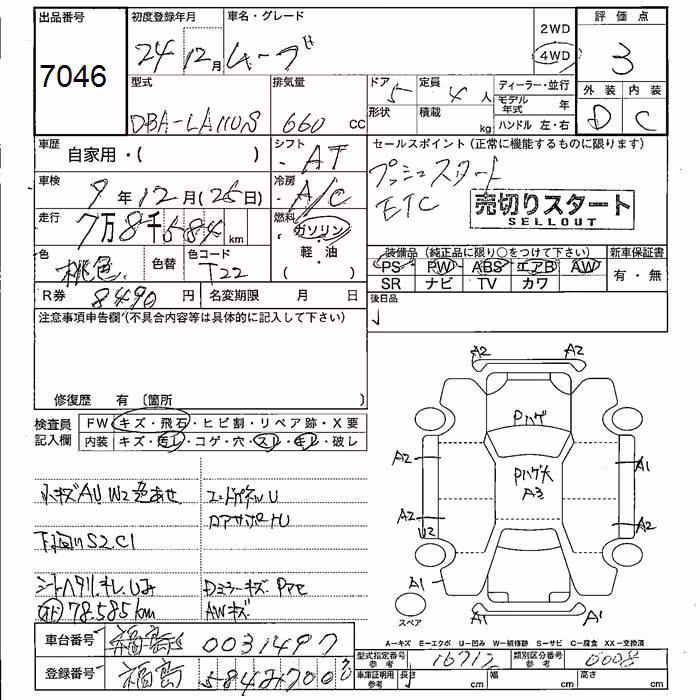 出品番号
7046
初度登録年月
24 12月
車名・グレード
ムーブ
2WD
4WD
評価点
3
型式
DBA-LA110S
排気量
660 cc
ドア 5
形状
定員 4人
積載 kg
ディーラー・並行
モデル年式 年
ハンドル 左・右
外装 内装
D C
車歴
自家用・( )
シフト
AT
セールスポイント(正常に機能するものに限ります)
プッシュスタート
ETC
売切りスタート
SELLOUT
車検
9年12月(25日)
冷房
A/C
走行
7万8千584km
燃料
ガソリン
軽・油
色
桃色
色替
色コード
T22
装備品(純正品に限り○をつけて下さい)
PS PW ABS エアB AW
SR ナビ TV カワ
新車保証書
有・無
R券 8490円
名変期限 月 日
後日品
注意事項申告欄(不具合内容等は具体的に記入して下さい)
修復歴 有 (箇所
検査員記入欄
FW キズ・飛石・ヒビ割・リペア跡・X要
内装 キズ・汚レ・コゲ・穴・スレ・キレ・破レ
小キズAU W2 色あせ
エンドパネルU
コアサポートU
下回りS2 C1
シートヘタリ、キレ、しみ
78.585km
DミラーキズPアセ
AWキズ
A2 A2
Pハゲ
A2 A1
Pハゲ大
A3
A2 A2
U2
A1
A1 A1
スペア
A－キズ E－エクボ U－凹み W－補修跡 S－サビ C－腐食 XX－交換済
車台番号 0031497
登録番号
型式指定番号 参考 16712
類別区分番号 参考
車庫証明用 参考
長さ cm 幅 cm 高さ cm